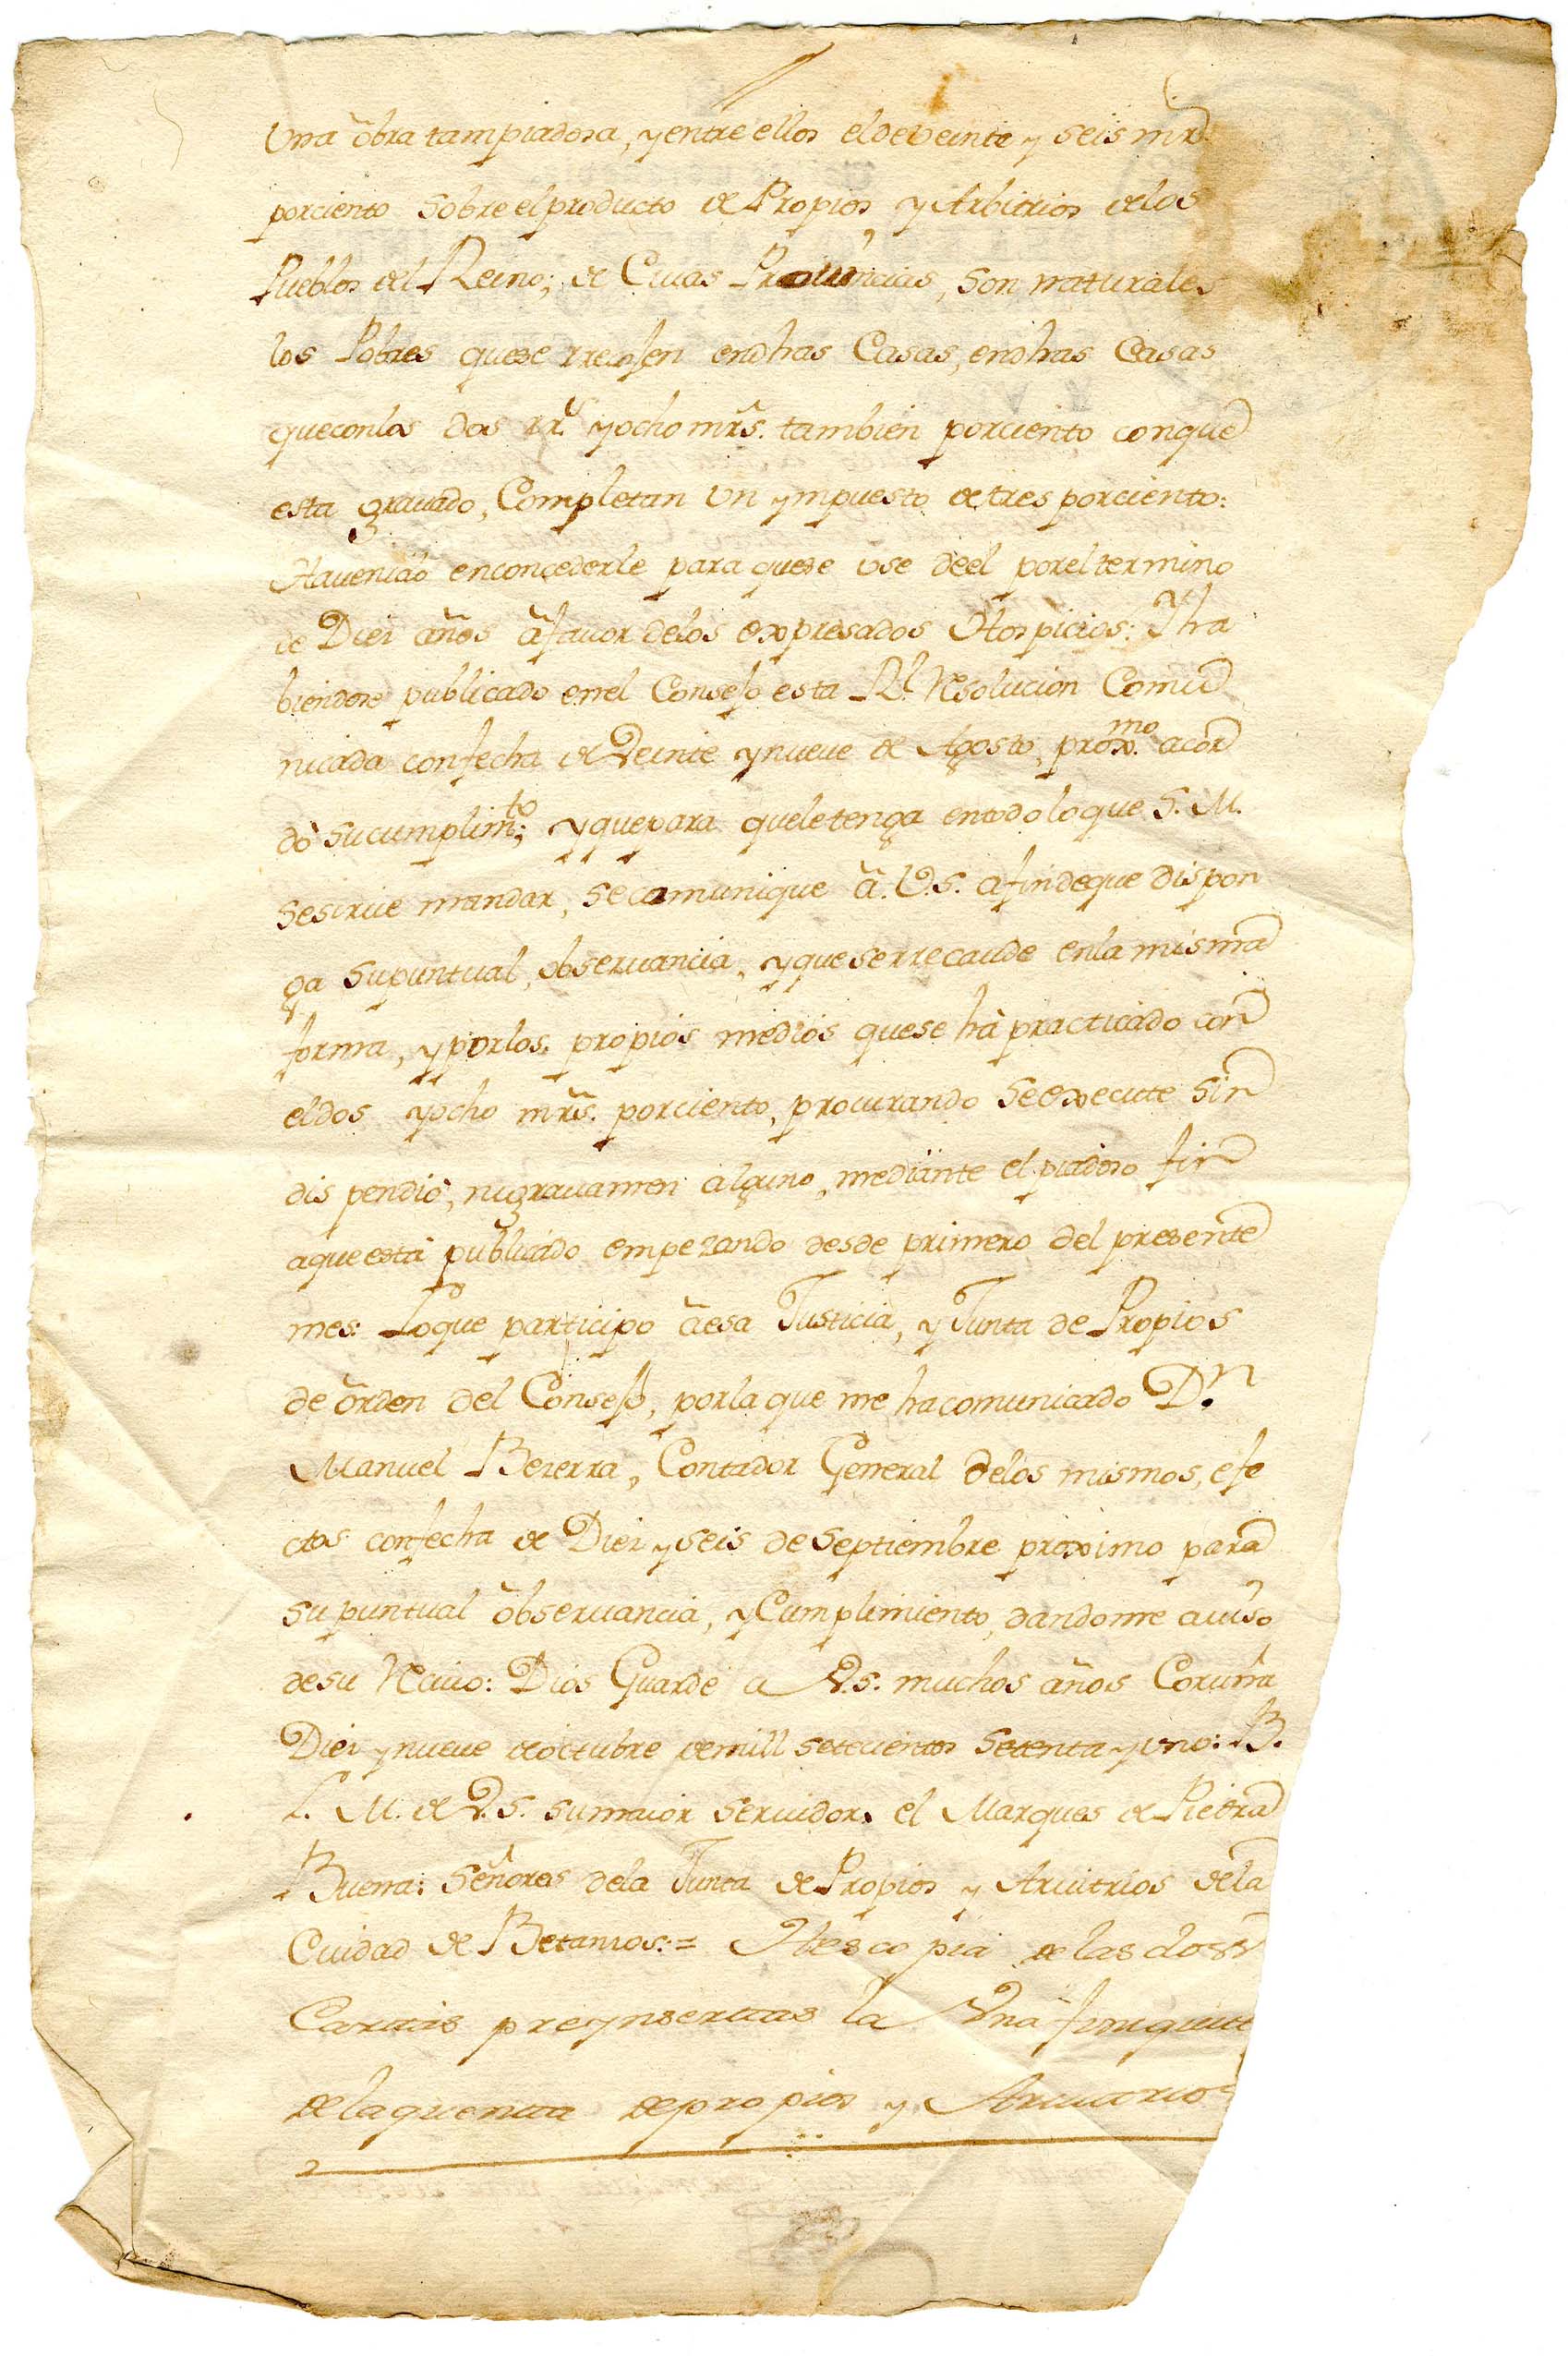 Una obra tam piadosa, y entre ellos el de veinte y seis mrs.
por ciento sobre el producto de Propios y Arbitrios de los
Pueblos del Reino; de Cuias Prouincias, son naturales
los Pobres que se rrecojen en dhas Casas, en dhas Casas
que con los dos rr.s y ocho mrs. tambien por ciento con que
esta grauado, Completan Un ympuesto de tres por ciento:
Ha uenido en concederle para que se use de el por el termino
de Diez años â fauor de los expresados Hospicios: Y ha
biendose publicado en el Consejo esta Rl. Resolucion Comu
nicada con fecha de Veinte y nueve de Agosto, prox.mo acor
dò su cumplim.to; y que para que le tenga en todo lo que S. M.
se sirue mandar, se comunique â. V.S. a fin de que dispon
ga su puntual, obseruancia, y que se rrecaude en la misma
forma, y por los, propios medios que se hà practicado con
el dos y ocho mrs. por ciento, procurando se execute sin
dispendio, ni grauamen alguno, mediante el piadoso fin
a que està publicado empezando desde primero del presente
mes: Lo que participo â esa Justicia, y Junta de Propios
de orden del Consejo, por la que me ha comunicado D.n
Manuel Bezerra, Contador General de los mismos, efe
ctos con fecha de Diez y seis de septiembre proximo para
su puntual obseruancia, y Cumplimiento, dandome auiso
de su Reciuo: Dios Guarde a V.S. muchos años Coruña
Diez y nueve de octubre de mill setecientos setenta y uno: B.
L. M. de V.S. su maior seruidor, el Marques de Piedra
Buena: Señores de la Junta de Propios y Aruitrios de la
Ciudad de Betanzos: = Es copia de las dos
Cartas preynsertas la Una
de la quenta de propios y Aruitrios